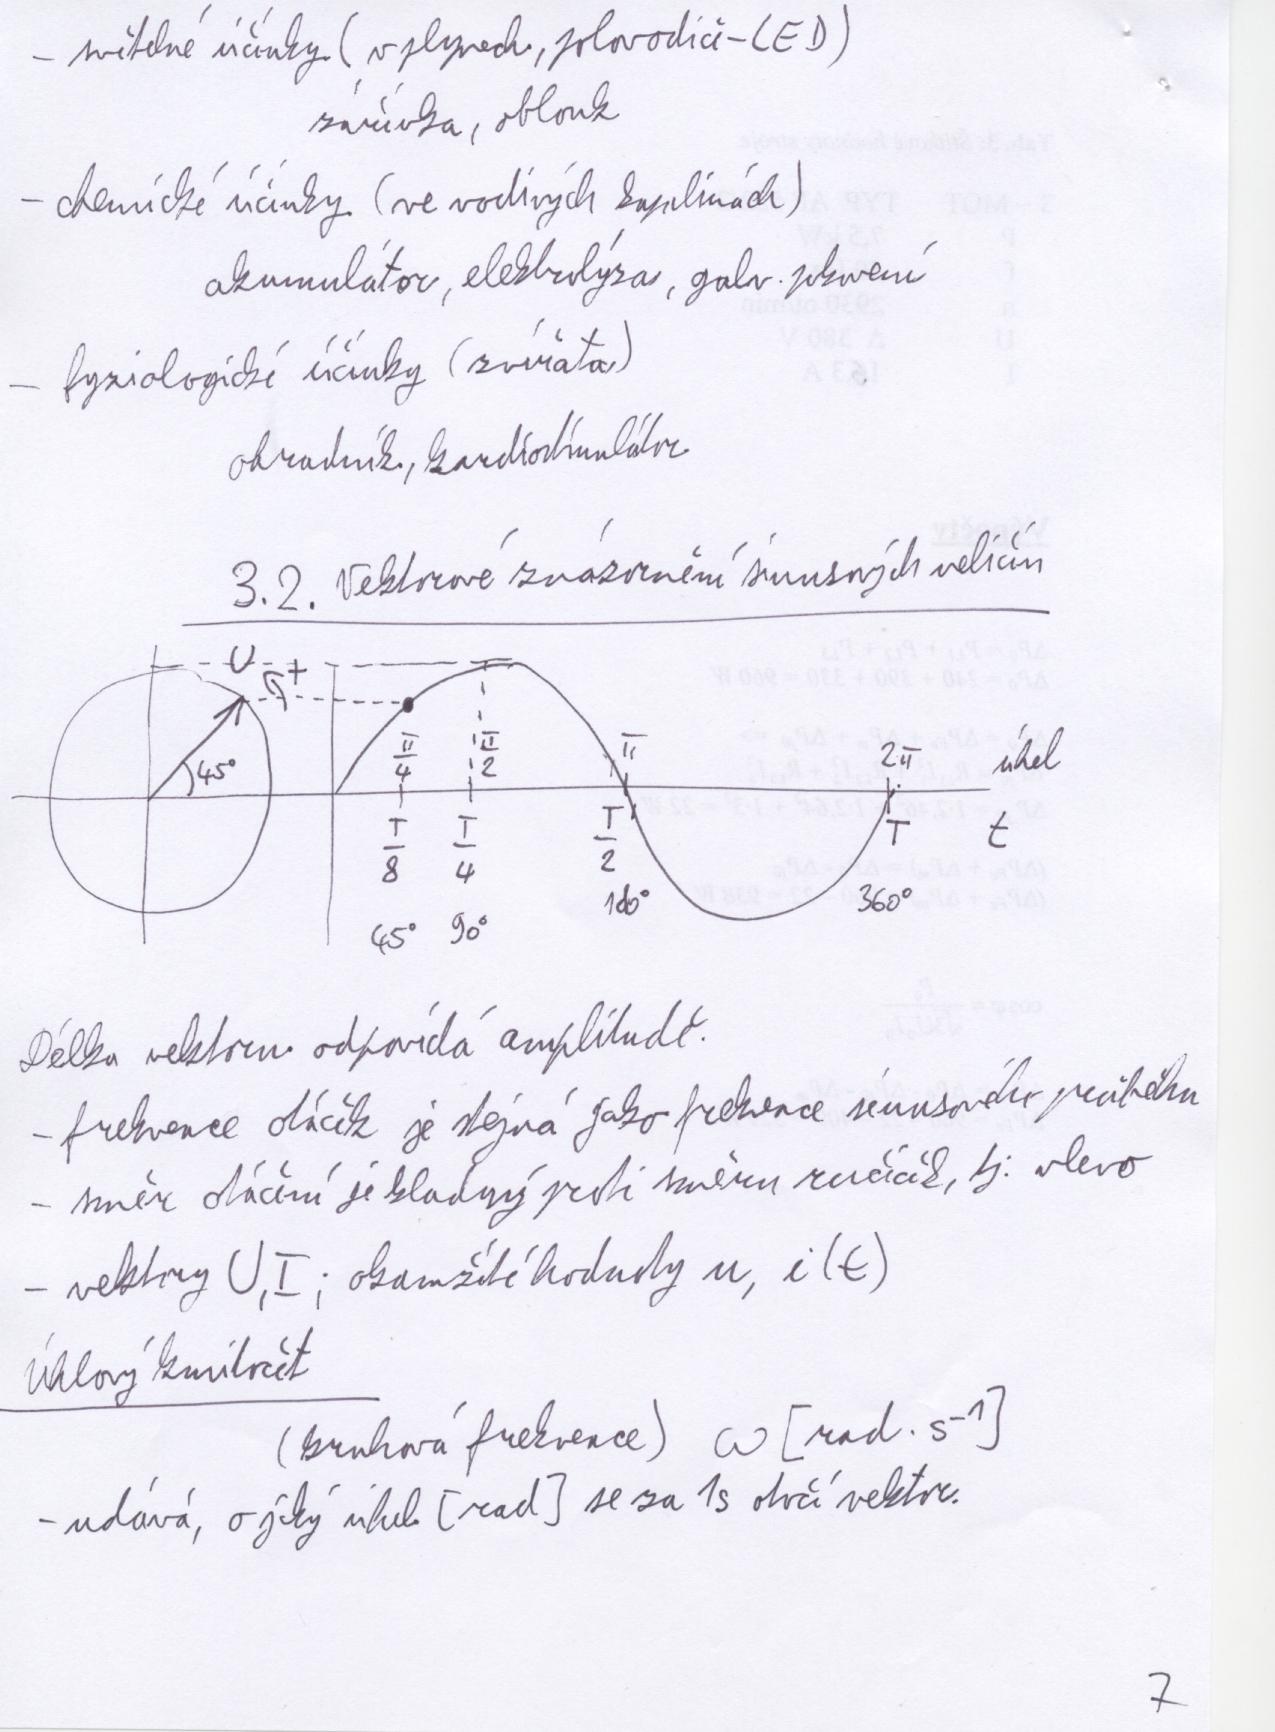 - světelné účinky (v plynech, polovodič - LED)
zářivka, oblouk
- chemické účinky (ve vodivých kapalinách)
akumulátor, elektrolýza, galv. pokovení
- fyziologické účinky (zvířata)
ohradník, kardiostimulátor
3.2. Vektorové znázornění sinusových veličin
U +
45°
π/4 π/2 π 2π úhel
T/8 T/4 T/2 T t
45° 90° 180° 360°
Délka vektoru odpovídá amplitudě.
- frekvence otáček je stejná jako frekvence sinusového průběhu
- směr otáčení je kladný proti směru ručiček, tj. vlevo
- vektory U, I ; okamžité hodnoty u, i (t)
Úhlový kmitočet
(kruhová frekvence) ω [rad . s⁻¹]
- udává, o jaký úhel [rad] se za 1s otočí vektor.
7